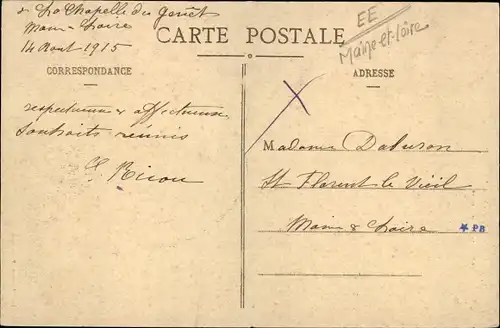 La Chapelle du Genêt
Maine & Loire
14 Août 1915
CARTE POSTALE
EE
Maine-et-Loire
CORRESPONDANCE
ADRESSE
respectueux & affectueux
souhaits réunis
Madame
St Florent le Vieil
Maine & Loire
PB